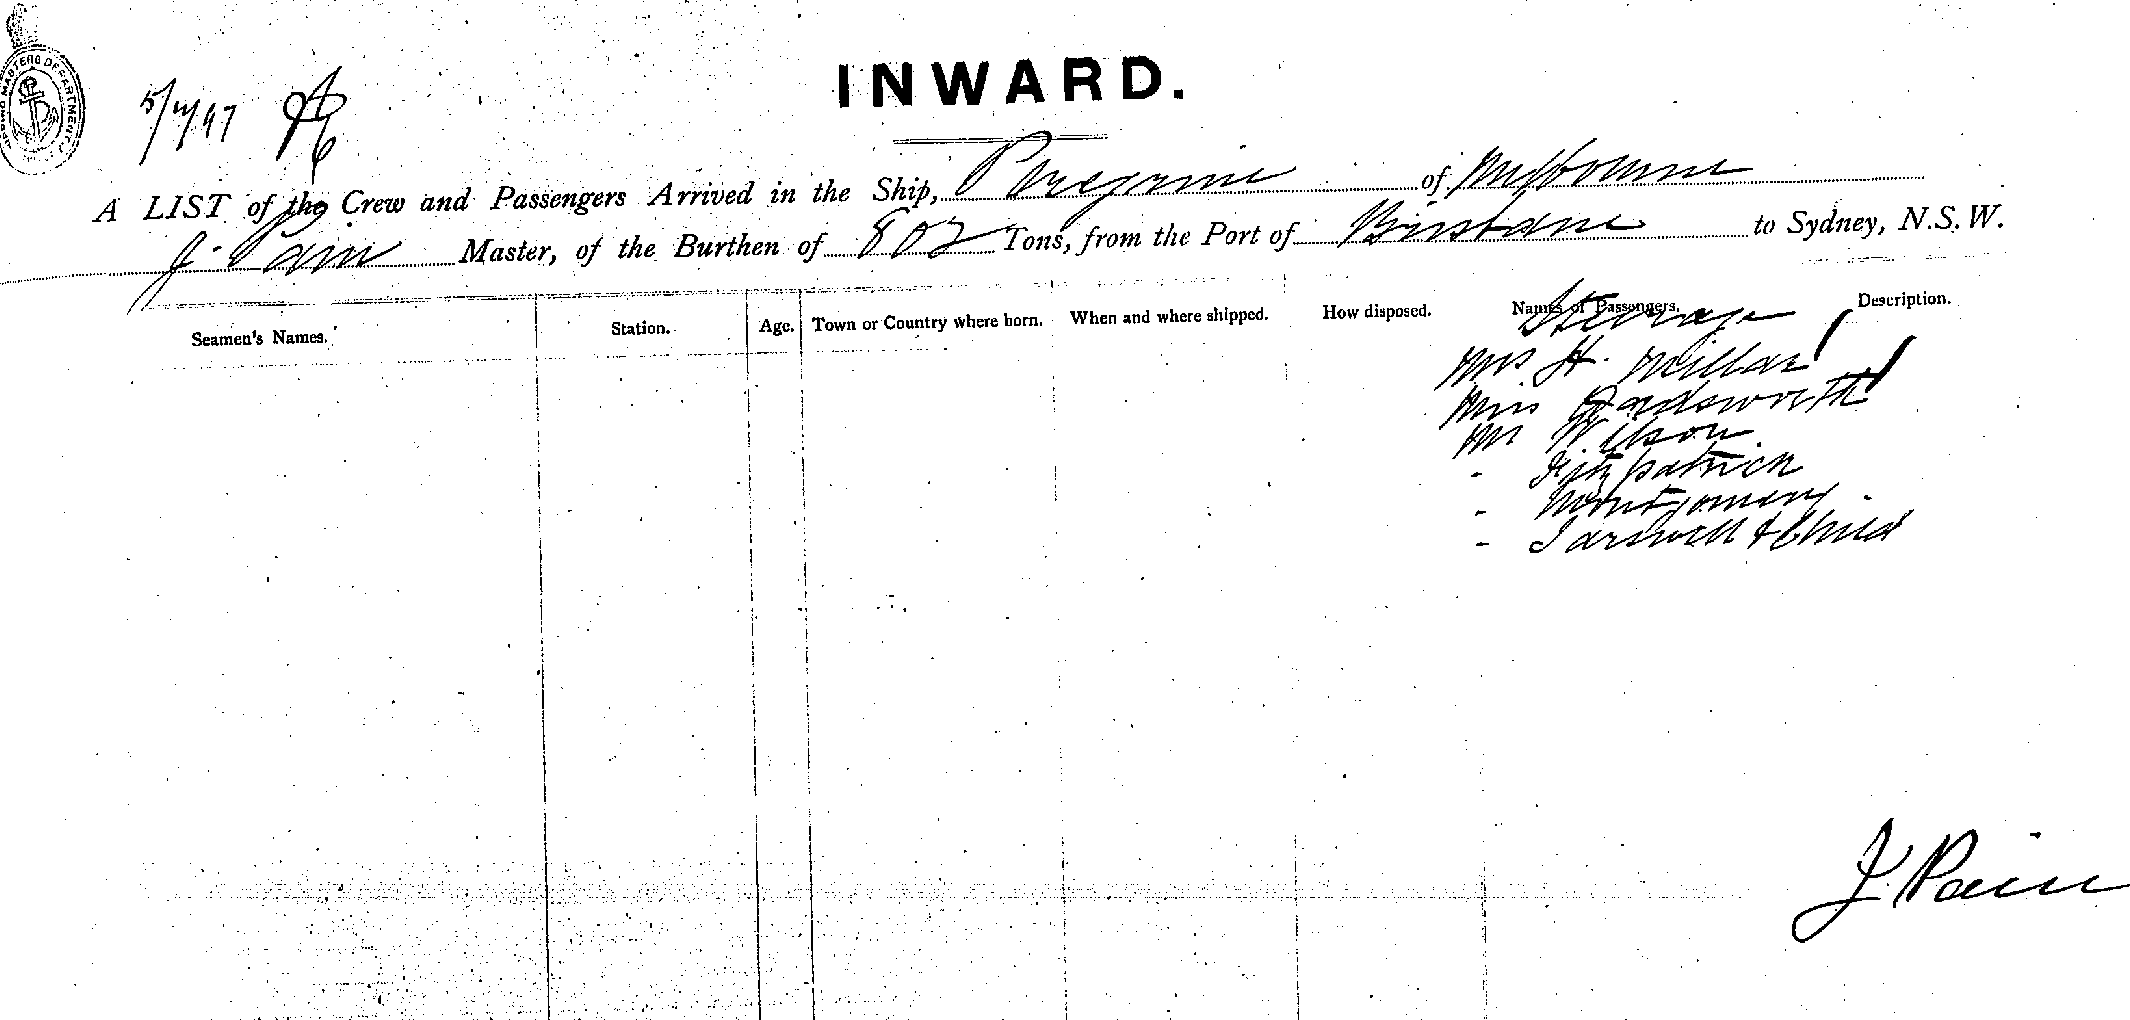 INWARD.
5/4/97
A LIST of the Crew and Passengers Arrived in the Ship, Peregrine of Melbourne
J. Pain Master, of the Burthen of 802 Tons, from the Port of Brisbane to Sydney, N.S.W.
Seamen's Names. Station. Age. Town or Country where born. When and where shipped. How disposed. Names of Passengers. Description.
Steerage
Mrs H. Millar
Miss Wordsworth
Mr Wilson
- Fitzpatrick
- Montgomery
- & Child
J. Pain